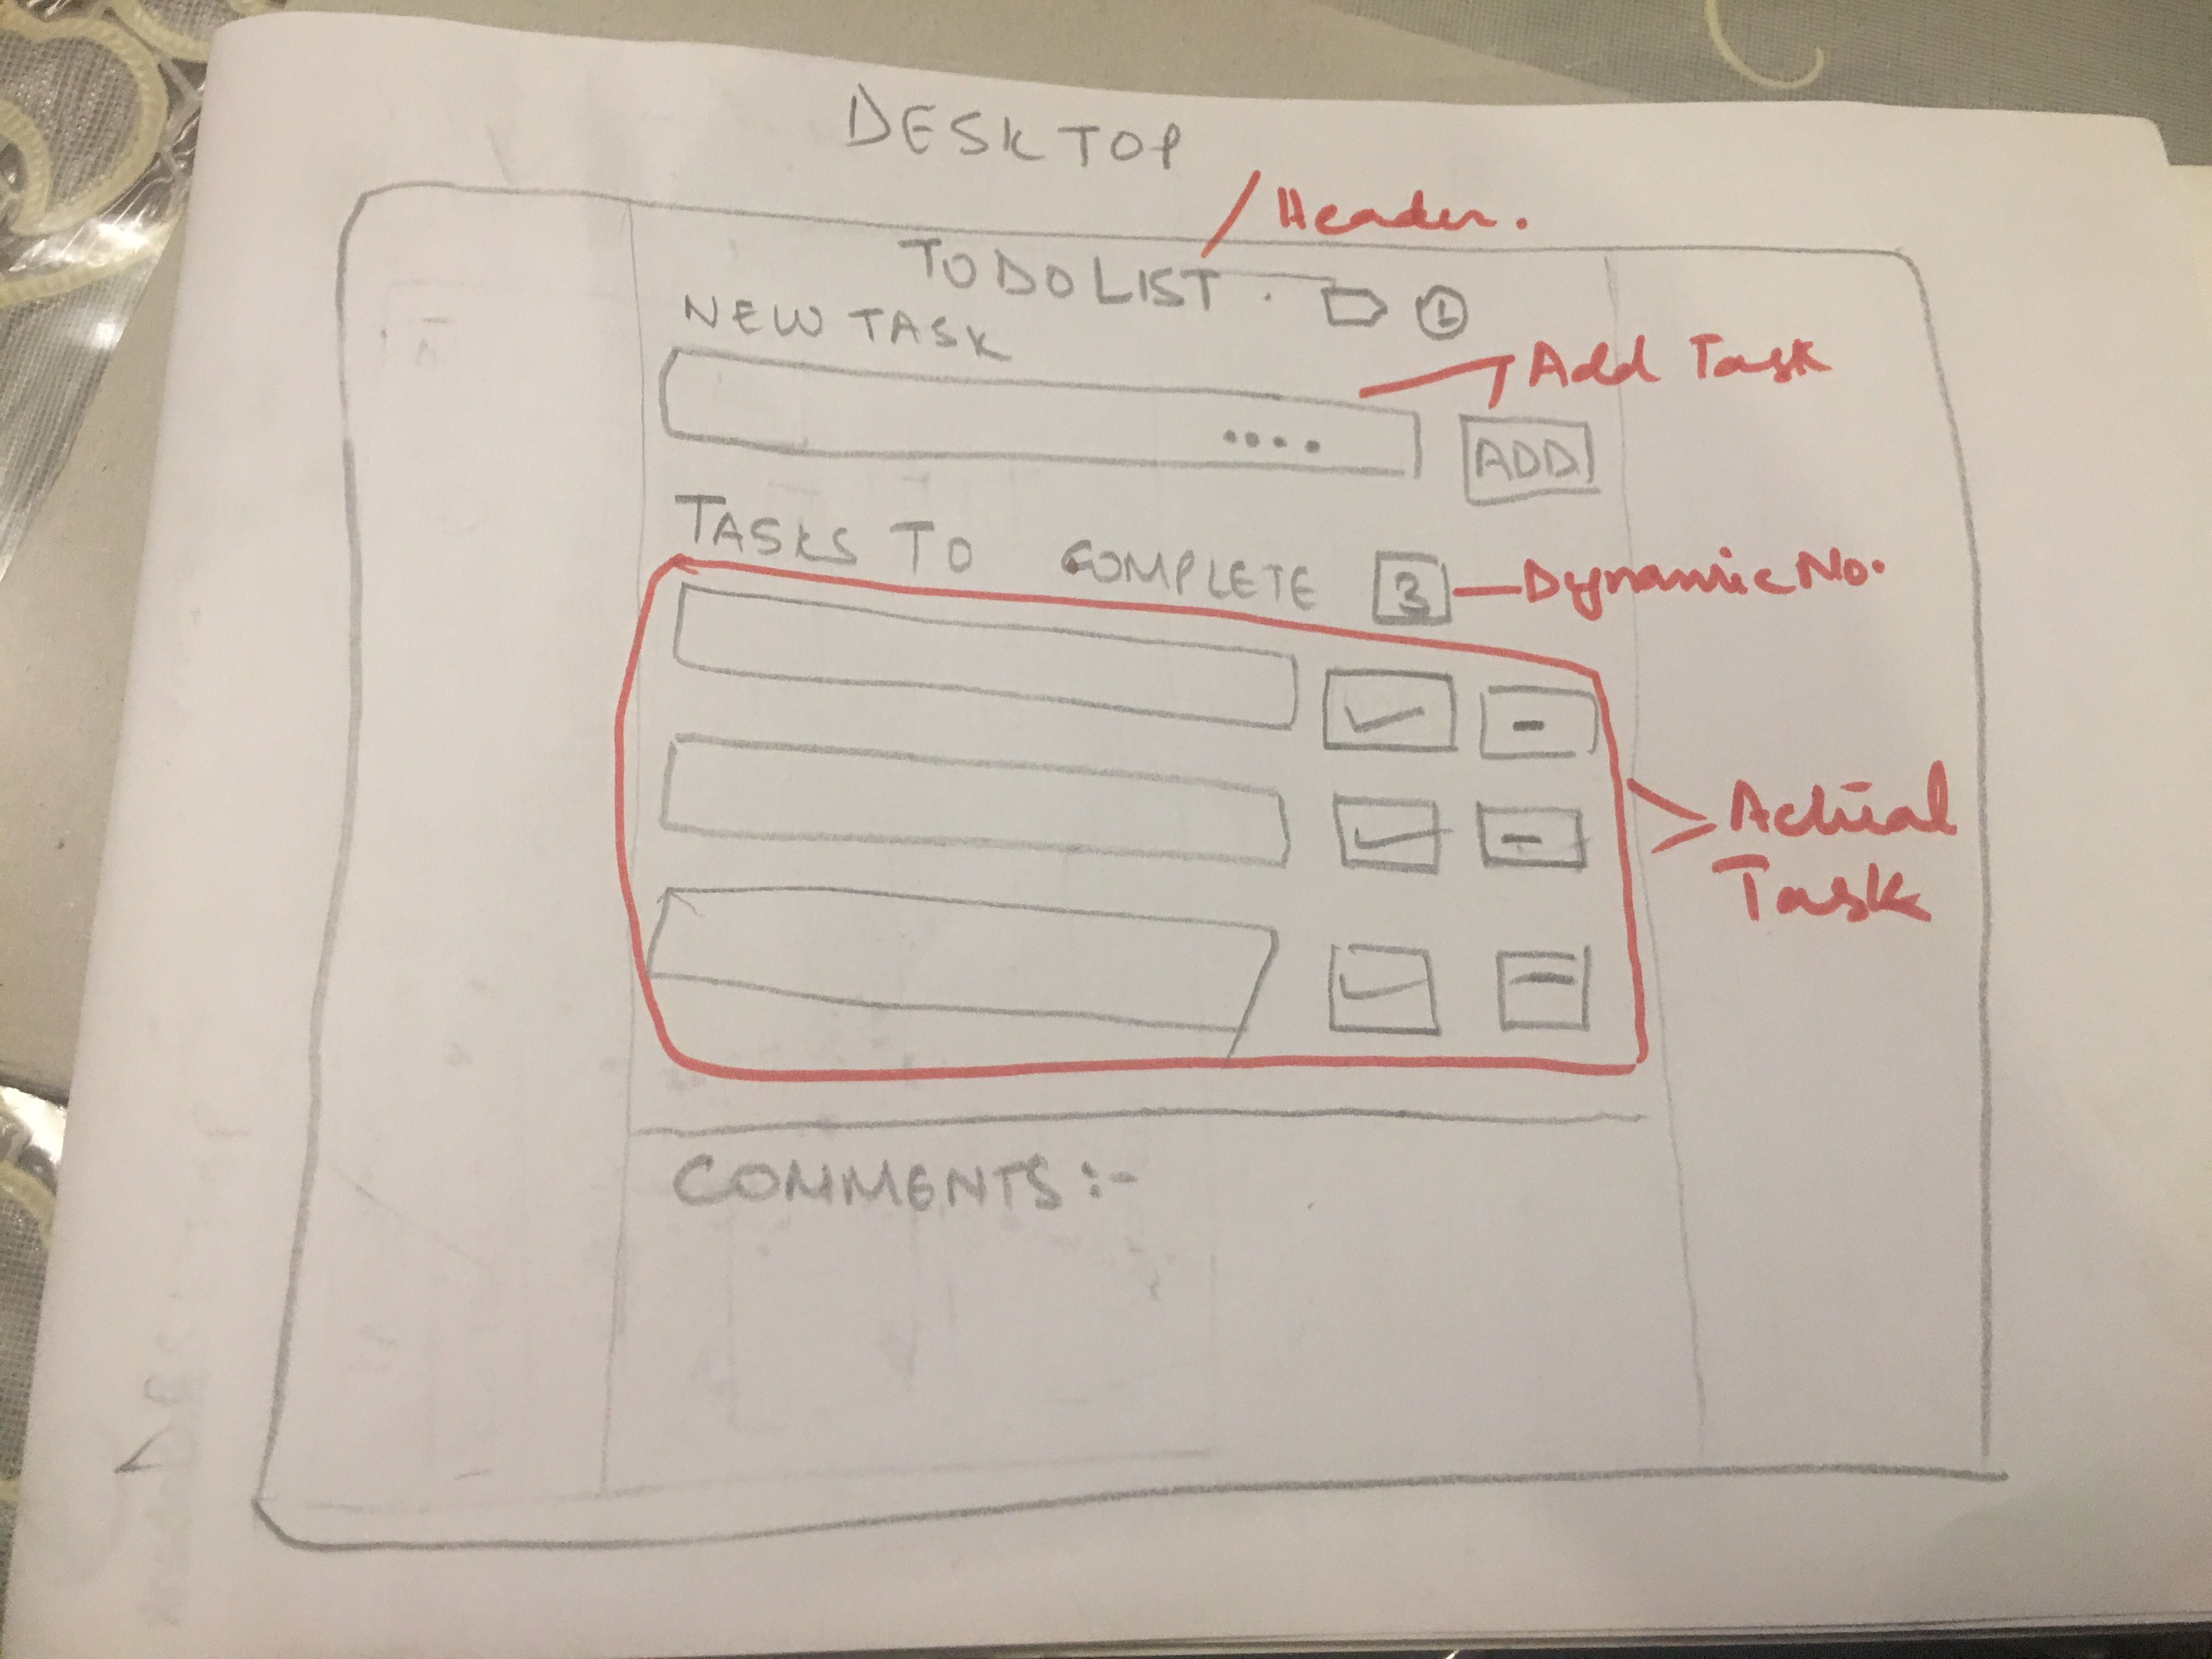 DESKTOP
Header.
TO DO LIST.
NEW TASK
Add Task
ADD
TASKS TO COMPLETE 3
Dynamic No.
Actual
Task
COMMENTS :-